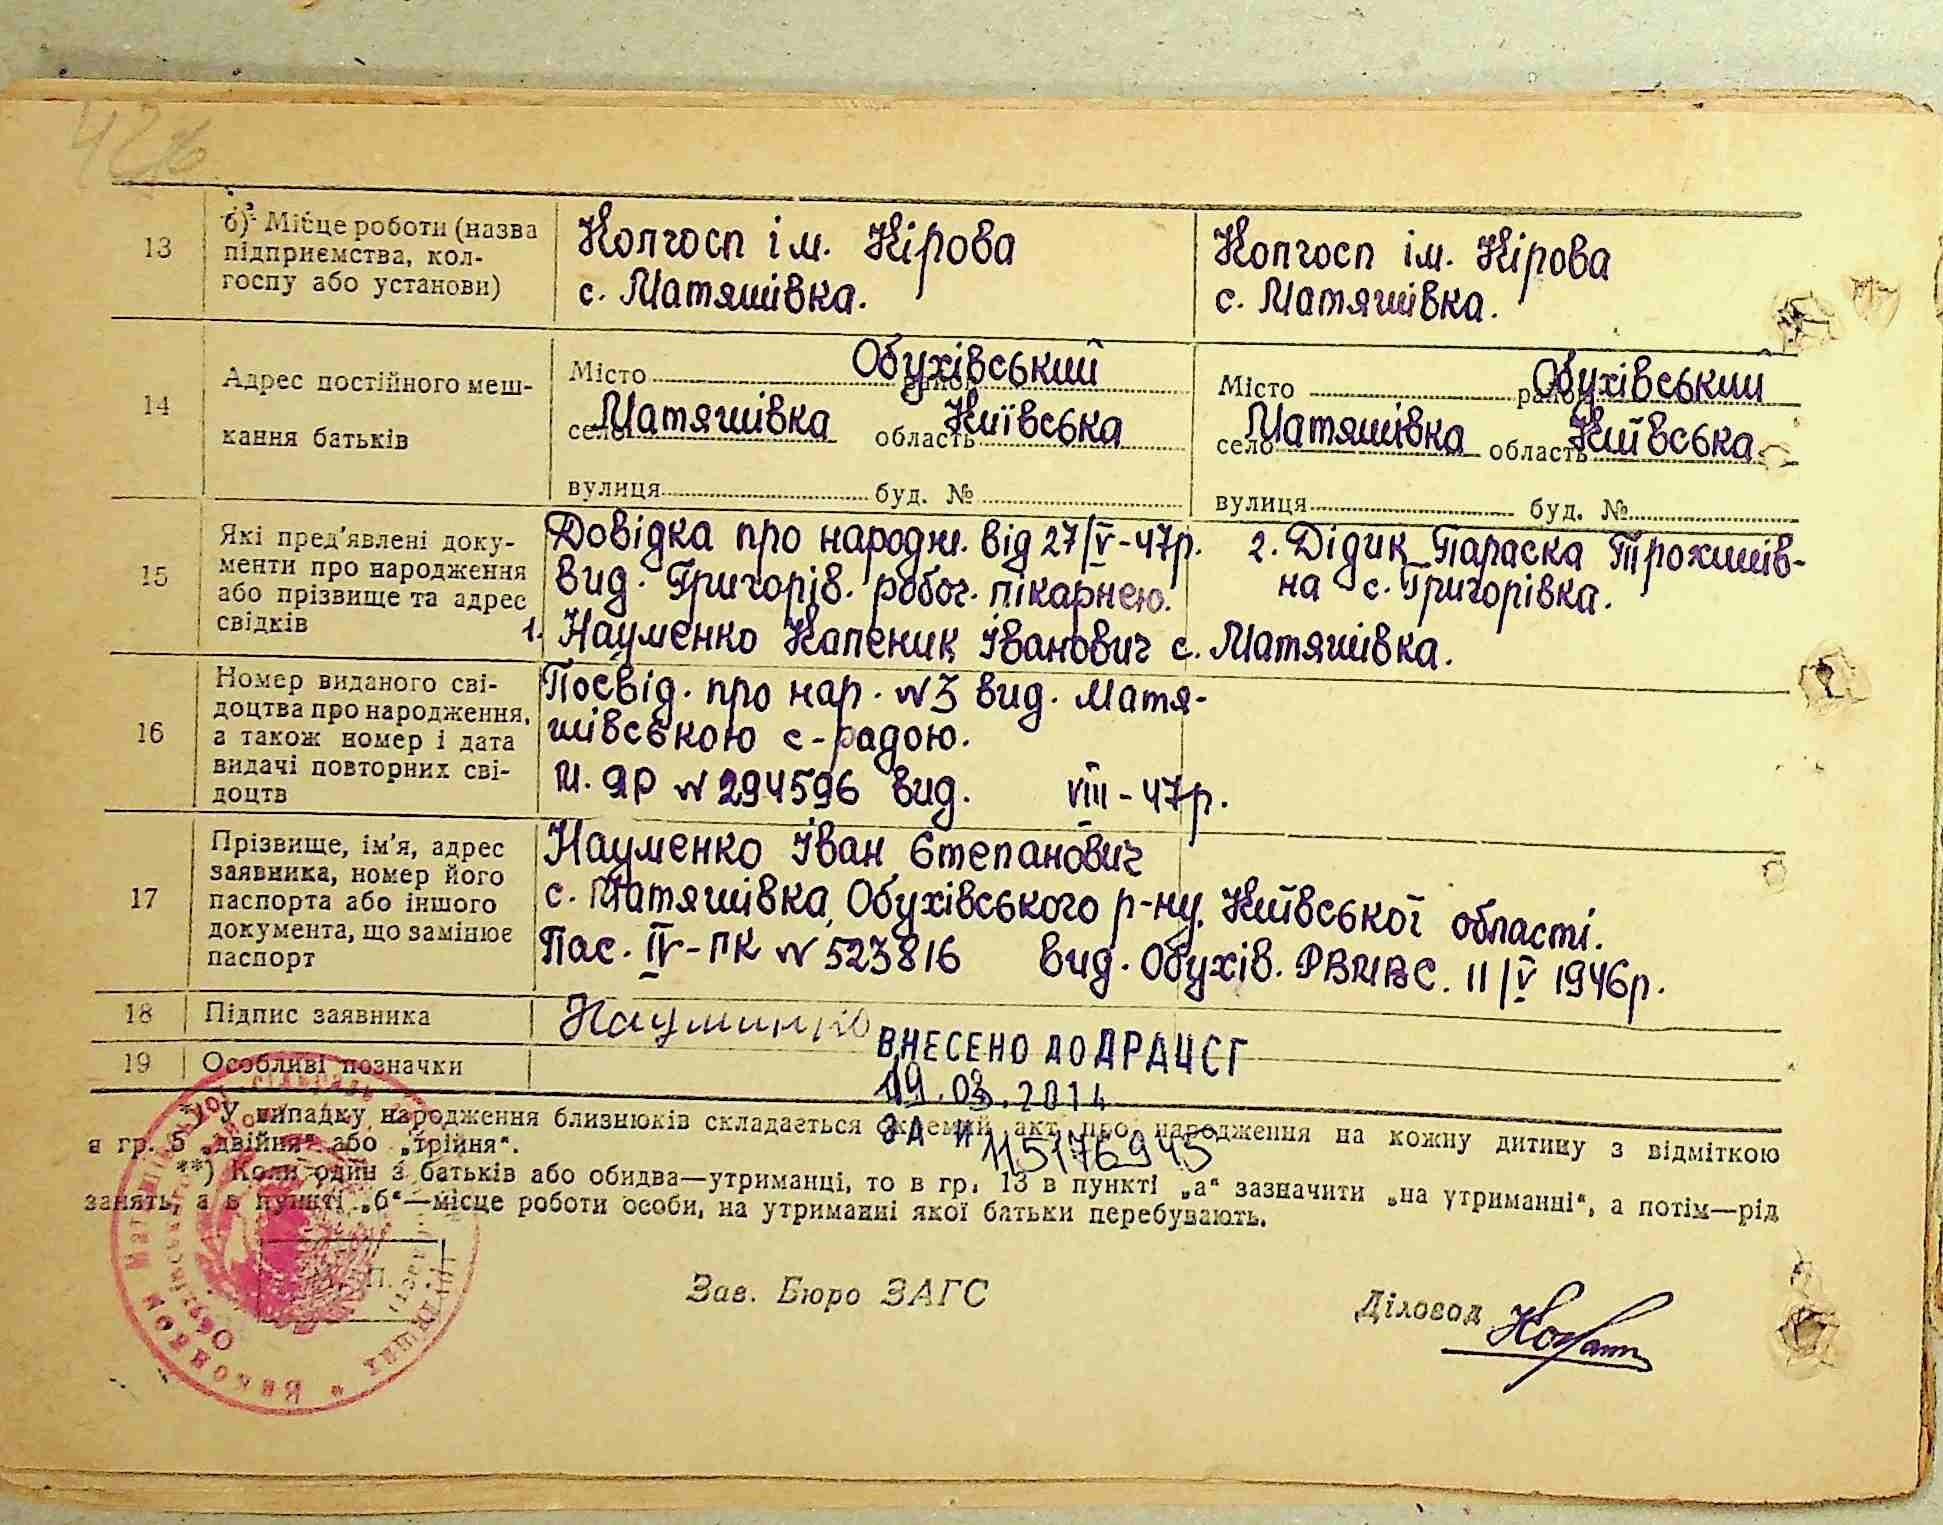 42б
13
б) Місце роботи (назва
підприємства, кол-
госпу або установи)
Колгосп ім. Кірова
с. Матяшівка.
Колгосп ім. Кірова
с. Матяшівка.
14
Адрес постійного меш-
кання батьків
Місто район Обухівський
село Матяшівка область Київська
вулиця буд. №
Місто район Обухівський
село Матяшівка область Київська
вулиця буд. №
15
Які пред'явлені доку-
менти про народження
або прізвище та адрес
свідків
Довідка про народж. від 27/V-47р.
вид. Григорів. робог. пікарнею.
1. Науменко Каленик Іванович с. Матяшівка.
2. Дідик Параска Трохимів-
на с. Григорівка.
16
Номер виданого сві-
доцтва про народження,
а також номер і дата
видачі повторних сві-
доцтв
Посвід. про нар. № 3 вид. Матя-
шівською с-радою.
ЯР № 294596 вид. VIII-47р.
17
Прізвище, ім'я, адрес
заявника, номер його
паспорта або іншого
документа, що замінює
паспорт
Науменко Іван Степанович
с. Матяшівка, Обухівського р-ну, Київської області.
Пас. IV-ПК № 523816 вид. Обухів. РВМВС. 11/V 1946р.
18
Підпис заявника
Науминко
19
Особливі позначки
ВНЕСЕНО ДО ДРАЦСГ
19.03.2014
ЗА №
115176945
*) У випадку народження близнюків складається окремий акт про народження на кожну дитину з відміткою
в гр. 5 „двійня" або „трійня".
**) Коли один з батьків або обидва—утриманці, то в гр. 13 в пункті „а" зазначити „на утриманні", а потім—рід
занять, а в пункті „б"—місце роботи особи, на утриманні якої батьки перебувають.
М. П.
Зав. Бюро ЗАГС
Діловод
Виконком